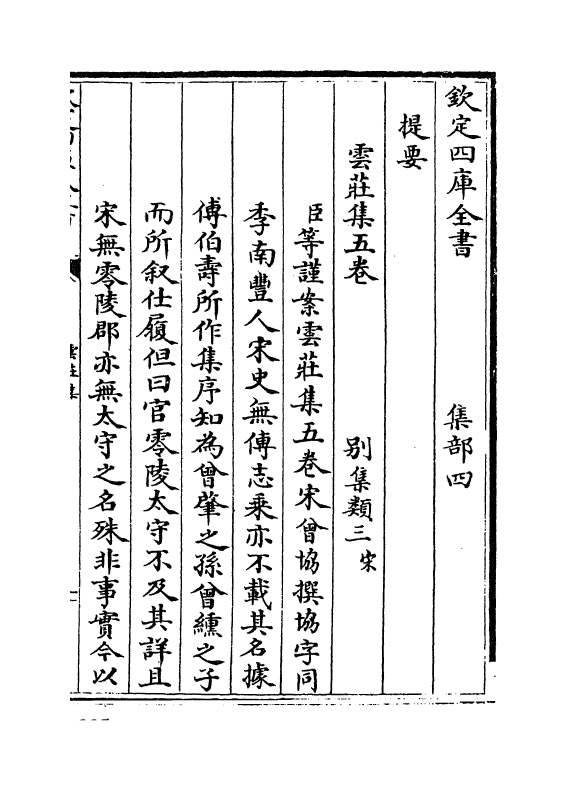 欽定四庫全書 集部四
提要
雲莊集五卷 別集類三 宋
臣等謹案雲莊集五卷宋曾協撰協字同
季南豐人宋史無傳志乘亦不載其名據
傅伯壽所作集序知為曾肇之孫曾纁之子
而所叙仕履但曰官零陵太守不及其詳且
宋無零陵郡亦無太守之名殊非事實今以
雲莊集